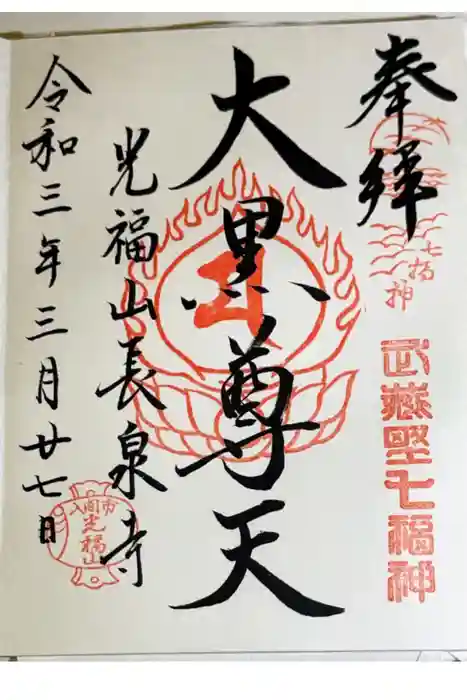 奉拝
七福神
武蔵野七福神
大黒尊天
光福山長泉寺
令和三年三月廿七日
入間市
光福山